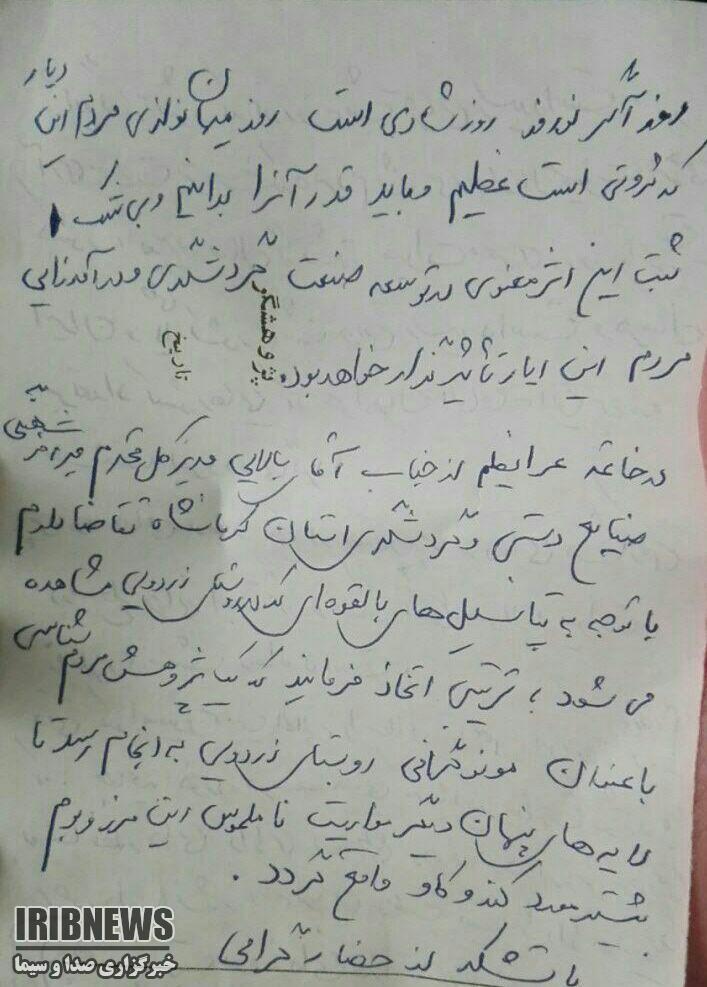 دیار
روز آگر نوروز روز شادی است روز میهمان نوازی مردم این
که ثروتی است عظیم و باید قدر آنرا بدانیم و بی شک
ثبت این اثر معنوی در توسعه صنعت گردشگری و درآمدزایی
پژوهشگر
تاریخ
مردم این دیار تأثیرگذار خواهد بود.
به
در خاتمه عرایضم از جناب آقای مدیرکل محترم میراث
صنایع دستی و گردشگری استان کرمانشاه تقاضا دارم
با توجه به پتانسیل های بالقوه ای که در روستای زردویی مشاهده
می شود؛ ترتیبی اتخاذ فرمایند که یک پژوهش مردم شناسی
با عنوان مونوگرافی روستای زردویی به انجام رسد تا
لایه های پنهان دیگر مواریث ناملموس این مرز و بوم
بیشتر مورد کندوکاو واقع گردد.
با تشکر از حضار گرامی
IRIBNEWS
خبرگزاری صدا و سیما